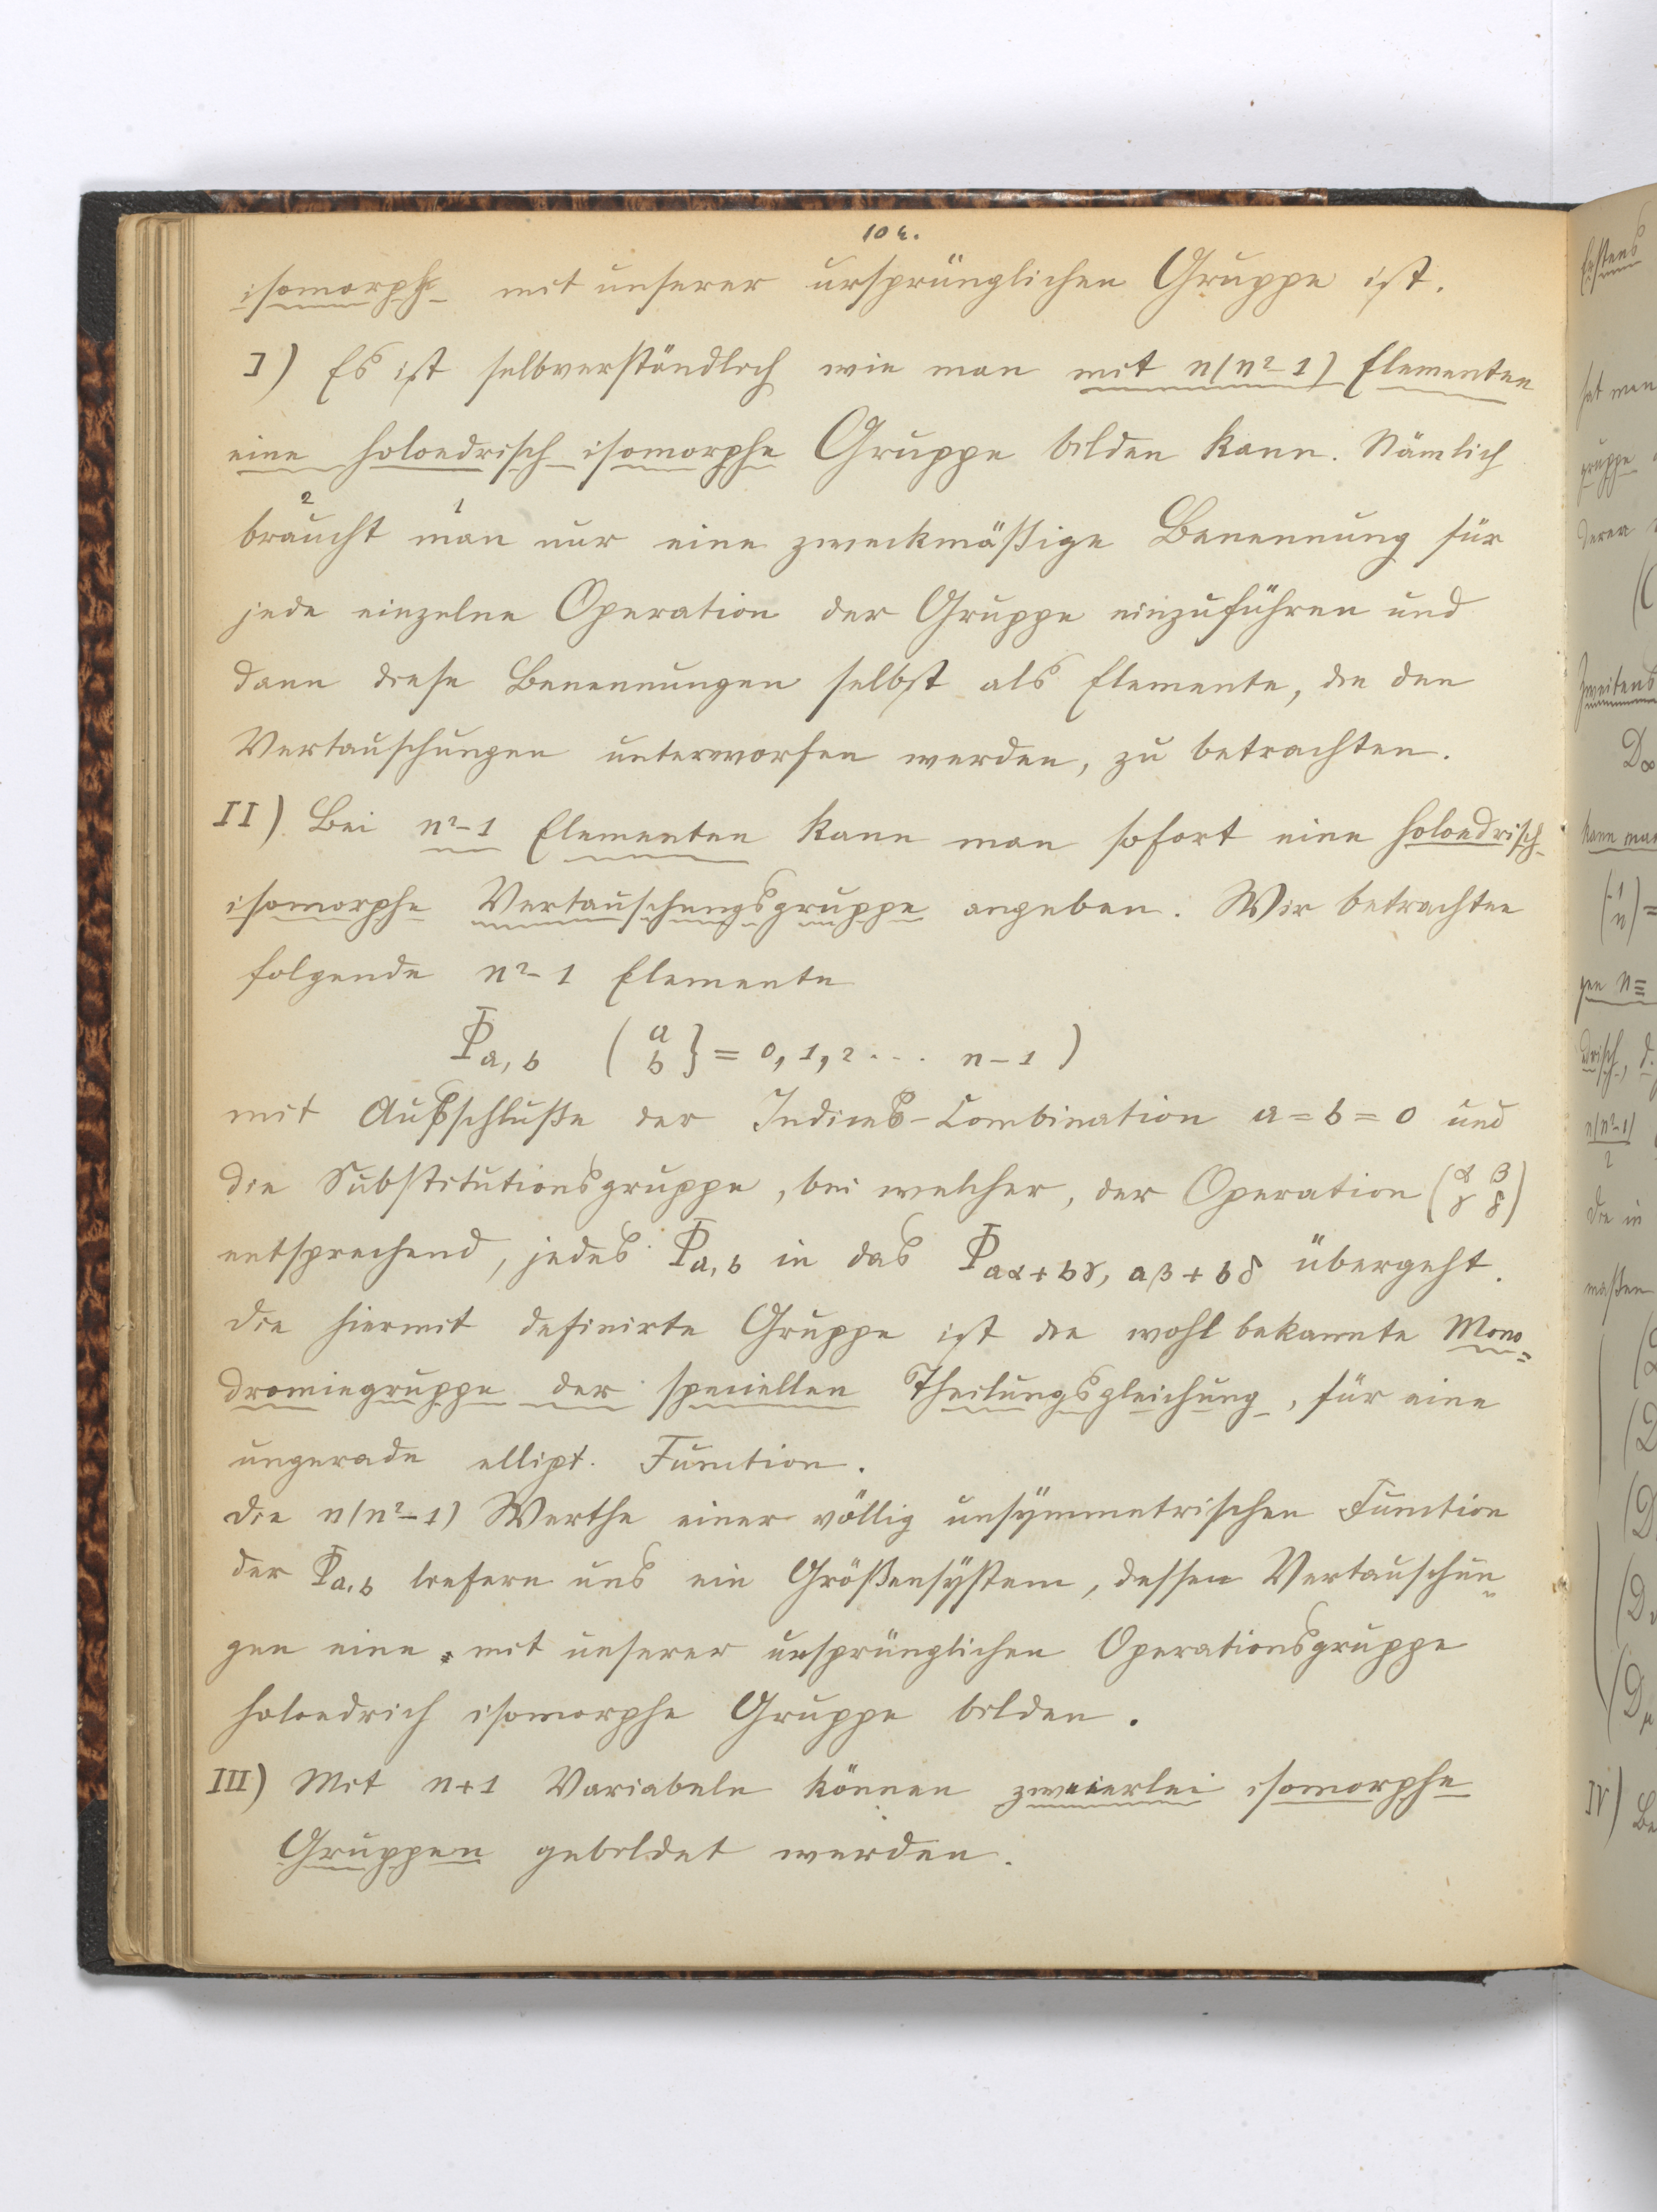 isomorph mit unserer ursprünglichen Gruppe ist.
I) Es ist selbverständlich wie man mit n(n²-1) Elementen
eine holoedrisch isomorphe Gruppe bilden kann. Nämlich
2 1
braucht man nur eine zweckmäßige Benennung für
jede einzelne Operation der Gruppe einzuführen und
dann diese Benennungen selbst als Elemente, die den
Vertauschungen unterworfen werden, zu betrachten.
II) Bei n²-1 Elementen kann man sofort eine holoedrisch-
isomorphe Vertauschungsgruppe angeben. Wir betrachten
folgende n²-1 Elemente
Φa,b (a b} = 0, 1, 2 ... n-1)
mit Ausschluße der Indices-Combination a = b = 0 und
die Substitutionsgruppe, bei welcher, der Operation (α β γ δ)
entsprechend, jedes Φa,b in das Φaα+bγ, aβ+bδ übergeht.
Die hiermit definirte Gruppe ist die wohl bekannte Mono=
dromiegruppe der speciellen Theilungsgleichung, für eine
ungerade ellipt. Function.
Die n(n²-1) Werthe einer völlig unsymmetrischen Function
der Φa,b liefern uns ein Größensystem, dessen Vertauschun=
gen eine mit unserer ursprünglichen Operationsgruppe
holoedrich isomorphe Gruppe bilden.
III) Mit n+1 Variabeln können zweierlei isomorphe
Gruppen gebildet werden.
Erstens
hat man
gruppe
deren
Zweitens
D∞
kann man
gen n≡
drisch, d.
n(n²-1)
2
die in
maßen
IV) Be